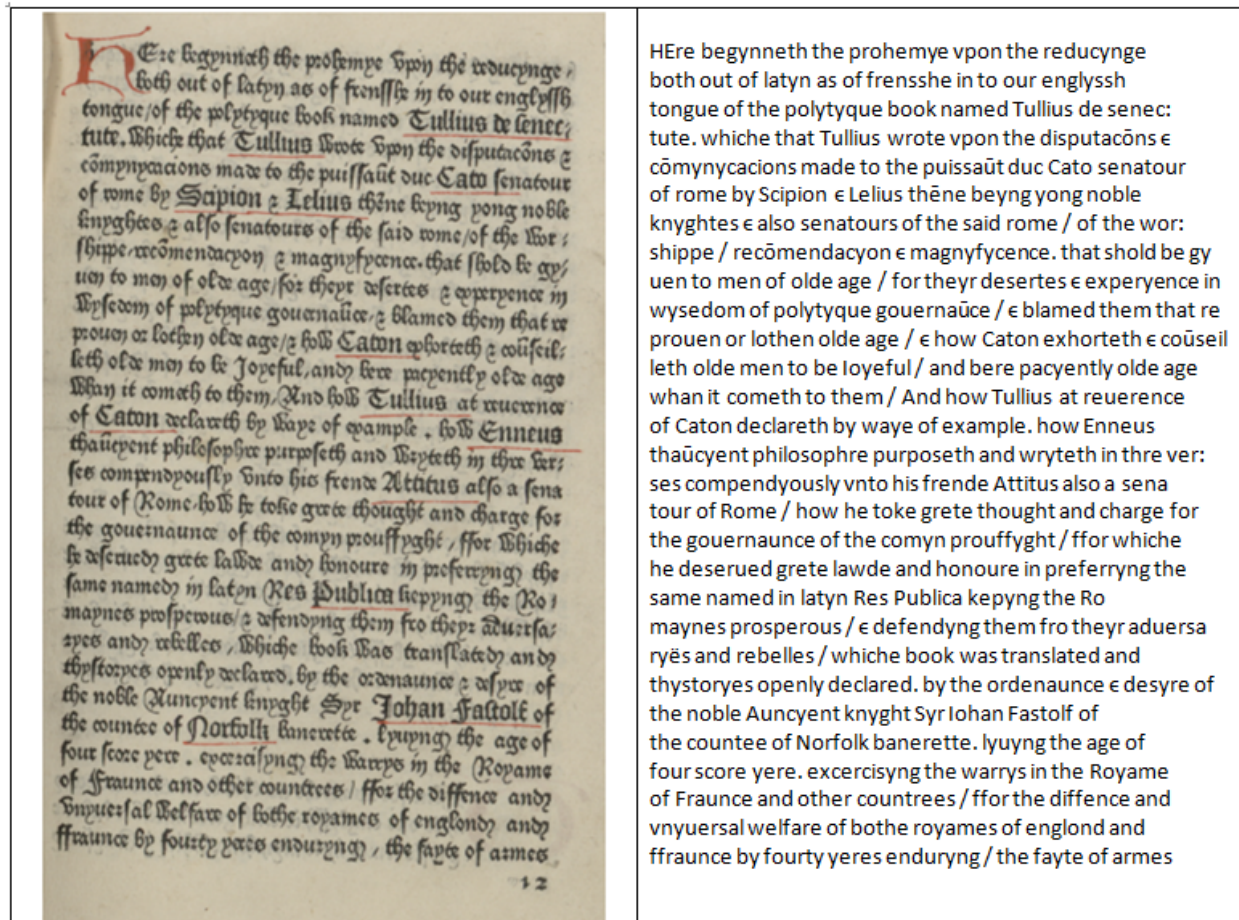 HEre begynneth the prohemye vpon the reducynge,
both out of latyn as of frensshe in to our englyssh
tongue/of the polytyque book named Tullius de senec:
tute. whiche that Tullius wrote vpon the disputacōns ⁊
cōmynycacions made to the puissaūt duc Cato senatour
of rome by Scipion ⁊ Lelius thēne beyng yong noble
knyghtes ⁊ also senatours of the said rome/of the wor:
shippe/recōmendacyon ⁊ magnyfycence.that shold be gy/
uen to men of olde age/for theyr desertes ⁊ experyence in
wysedom of polytyque gouernaūce/⁊ blamed them that re
prouen or lothen olde age/⁊ how Caton exhorteth ⁊ coūseil:
leth olde men to be Ioyeful/and bere pacyently olde age
whan it cometh to them/And how Tullius at reuerence
of Caton declareth by waye of example. how Enneus
thaūcyent philosophre purposeth and wryteth in thre ver:
ses compendyously vnto his frende Attitus also a sena
tour of Rome/how he toke grete thought and charge for
the gouernaunce of the comyn prouffyght/ffor whiche
he deserued grete lawde and honoure in preferryng the
same named in latyn Res Publica kepyng the Ro:
maynes prosperous/⁊ defendyng them fro theyr aduersa/
ryes and rebelles/whiche book was translated and
thystoryes openly declared.by the ordenaunce ⁊ desyre of
the noble Auncyent knyght Syr Iohan Fastolf of
the countee of Norfolk banerette. lyuyng the age of
four score yere. excercisyng the warrys in the Royame
of Fraunce and other countrees/ffor the diffence and
vnyuersal welfare of bothe royames of englond and
ffraunce by fourty yeres enduryng/the fayte of armes
12
HEre begynneth the prohemye vpon the reducynge
both out of latyn as of frensshe in to our englyssh
tongue of the polytyque book named Tullius de senec:
tute. whiche that Tullius wrote vpon the disputacōns ϵ
cōmynycacions made to the puissaūt duc Cato senatour
of rome by Scipion ϵ Lelius thēne beyng yong noble
knyghtes ϵ also senatours of the said rome / of the wor:
shippe / recōmendacyon ϵ magnyfycence. that shold be gy
uen to men of olde age / for theyr desertes ϵ experyence in
wysedom of polytyque gouernaūce / ϵ blamed them that re
prouen or lothen olde age / ϵ how Caton exhorteth ϵ coūseil
leth olde men to be Ioyeful / and bere pacyently olde age
whan it cometh to them / And how Tullius at reuerence
of Caton declareth by waye of example. how Enneus
thaūcyent philosophre purposeth and wryteth in thre ver:
ses compendyously vnto his frende Attitus also a sena
tour of Rome / how he toke grete thought and charge for
the gouernaunce of the comyn prouffyght / ffor whiche
he deserued grete lawde and honoure in preferryng the
same named in latyn Res Publica kepyng the Ro
maynes prosperous / ϵ defendyng them fro theyr aduersa
ryës and rebelles / whiche book was translated and
thystoryes openly declared. by the ordenaunce ϵ desyre of
the noble Auncyent knyght Syr Iohan Fastolf of
the countee of Norfolk banerette. lyuyng the age of
four score yere. excercisyng the warrys in the Royame
of Fraunce and other countrees / ffor the diffence and
vnyuersal welfare of bothe royames of englond and
ffraunce by fourty yeres enduryng / the fayte of armes